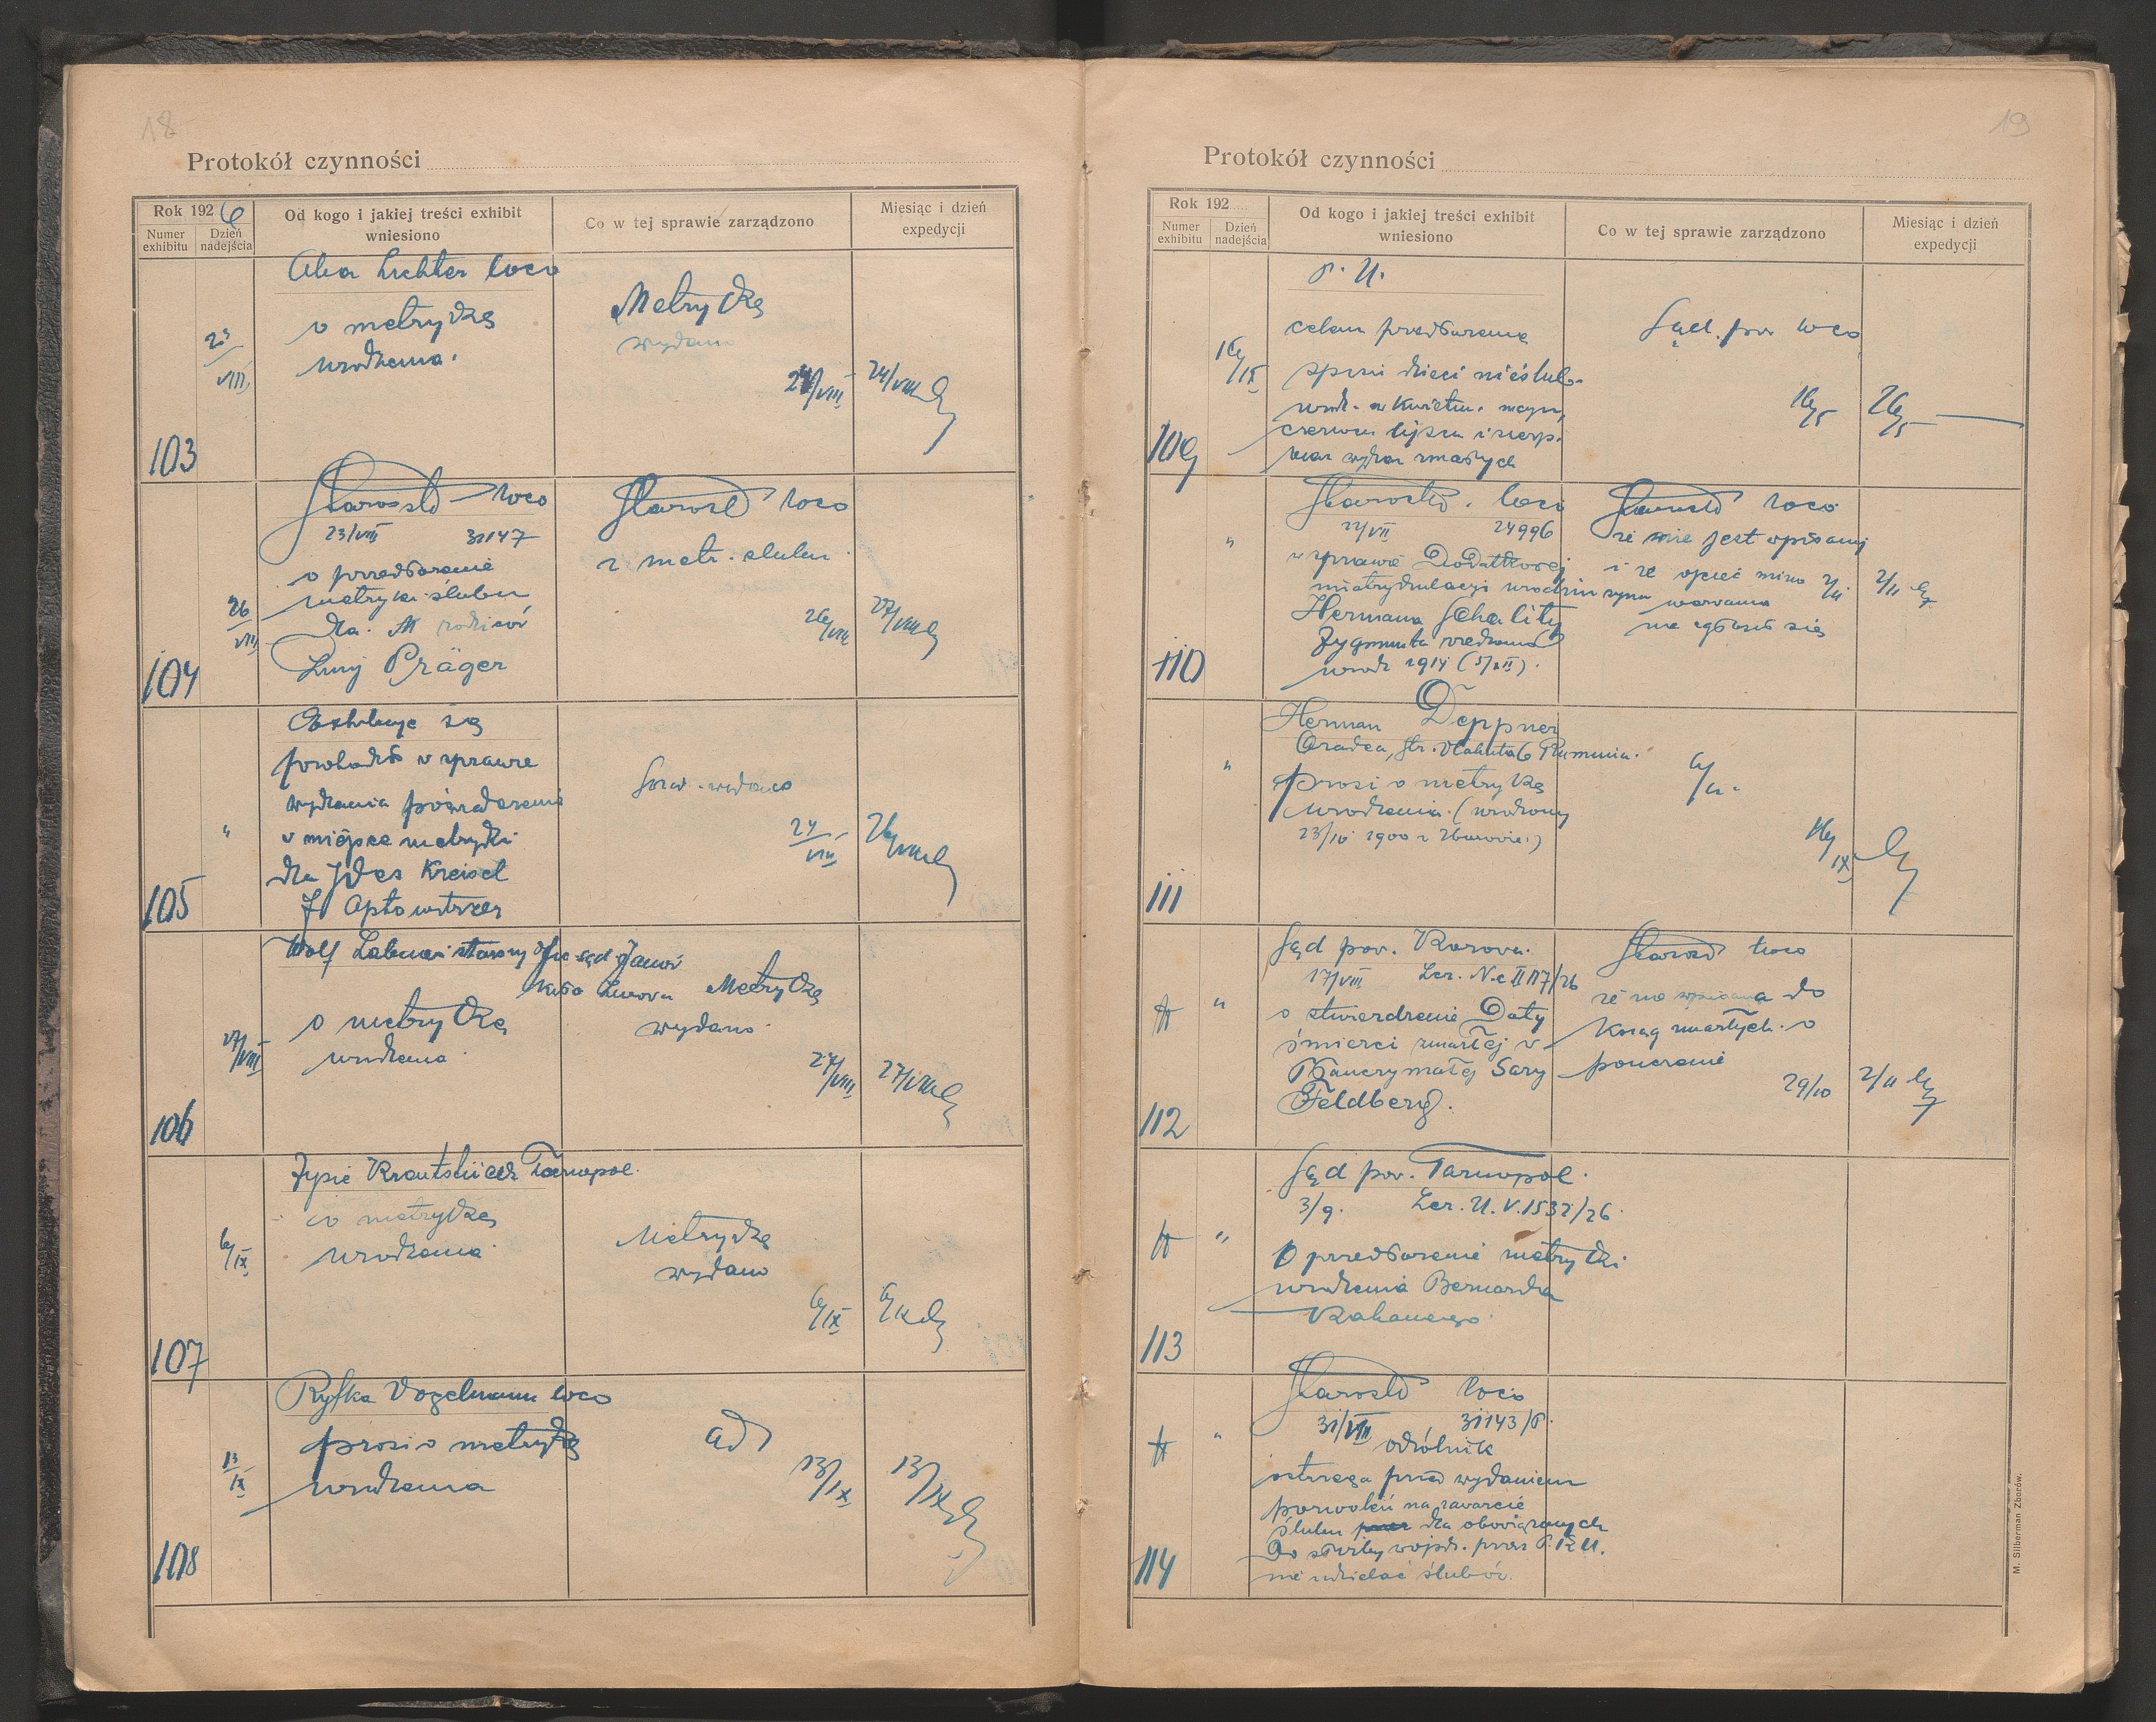 18
Protokół czynności
Rok 1926
Numer exhibitu
Dzień nadejścia
Od kogo i jakiej treści exhibit wniesiono
Co w tej sprawie zarządzono
Miesiąc i dzień expedycji
103
23/VIII
Aba Lichter loco
o metrykę
urodzenia.
Metrykę
wydano
24/VIII
24/VIII
104
26/VIII
Starostwo loco
23/VIII 31147
o przedłożenie
metryki ślubu
dla rodziców
Präger
Starost loco
z metr. ślubu
26/VIII
27/VIII
105
"
Exhibuje się
w sprawie
wydania poświadczenia
w miejsce metryki
dla Ides Kreisel
Aptowitzer
wydano
24/VIII
26/VIII
106
27/VIII
Wolf
koło Lwowa
o metrykę
urodzenia
Metrykę
wydano
27/VIII
27/VIII
107
6/IX
Zysie Tarnopol.
o metrykę
urodzenia
Metrykę
wydano
6/IX
6/IX
108
13/IX
Ryfka Vogelmann loco
prosi o metrykę
urodzenia
ad
13/IX
13/IX
19
Protokół czynności
Rok 192
Numer exhibitu
Dzień nadejścia
Od kogo i jakiej treści exhibit wniesiono
Co w tej sprawie zarządzono
Miesiąc i dzień expedycji
109
16/IX
P. U.
celem przedłożenia
spisu dzieci nieślub.
urodz. w kwietniu, maju,
czerwcu lipcu i sierp.
oraz wykaz zmarłych
Sąd. pow loco
110
"
Starostwo loco
22/VII 24996
w sprawie Dodatkowej
immatrykulacji urodzin syna
Hermana Schality
Zygmunta
urodz 1914
Starost loco
że nie jest wpisany
i że ojciec mimo
wezwania
nie zgłosił się
2/11
2/11
111
"
Herman Deppner
Oradea, str. Vlahuta 6 Rumunia.
prosi o metrykę
urodzenia. (urodzony
23/10 1900 w Zborowie.)
16/IX
112
"
Sąd pow. Kozowa.
17/VIII Lcz. Nc II 117/26
o stwierdzenie Daty
śmierci zmarłej w
Sary
Feldberg.
Starost loco
że nie wpisana do
Ksiąg zmarłych o
pouczenie
29/10
2/11
113
"
Sąd pow. Tarnopol.
3/9. Lcz. U. V. 1532/26
O przedłożenie metryki
urodzenia Bernarda
Kahanego
114
"
Starostwo loco
31/VIII 31143/P.
okólnik
ostrzega przed wydaniem
pozwoleń na zawarcie
ślubu dla obowiązanych
Do służby wojsk. przez P. K. U.
nie udzielać ślubów.
M. Silberman Zborów.